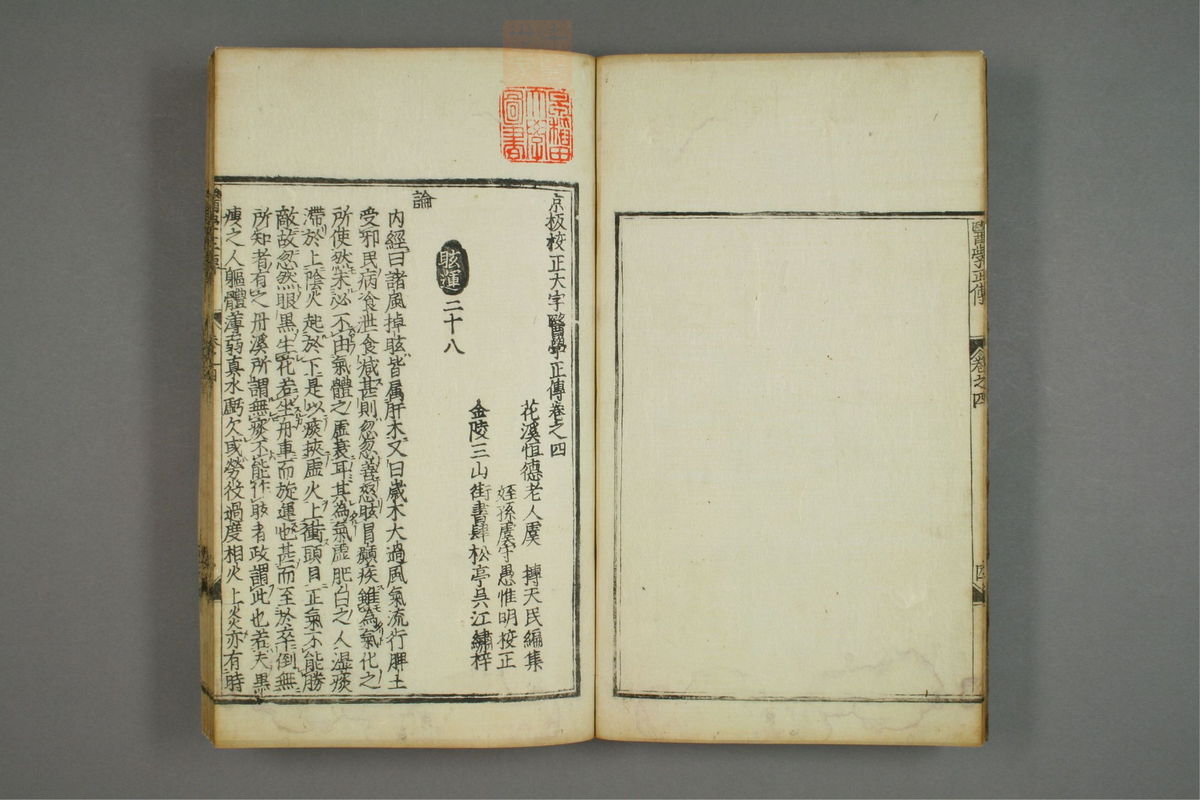 醫學正傳
卷之四
四
早稻田
大學
圖書
京板校正大字醫學正傳卷之四
花溪恒德老人虞 摶天民編集
姪孫虞守愚惟明校正
金陵三山街書肆松亭吳江繡梓
眩運 二十八
論
內經曰諸風掉眩皆属肝木又曰歲木大過風氣流行脾土
受邪民病食泄食减甚則忽忽善怒眩冒癲疾雖為氣化之
所使然未必不由氣體之虛衰耳其為氣虛肥白之人湿痰
滯於上陰火起於下是以痰挾虛火上衝頭目正氣不能勝
敵故忽然眼黒生花若坐舟車而旋運也甚而至於卒倒無
所知者有之丹溪所謂無痰不能作眩者政謂此也若夫黒
瘦之人軀體薄弱真水虧欠或勞役過度相火上炎亦有時